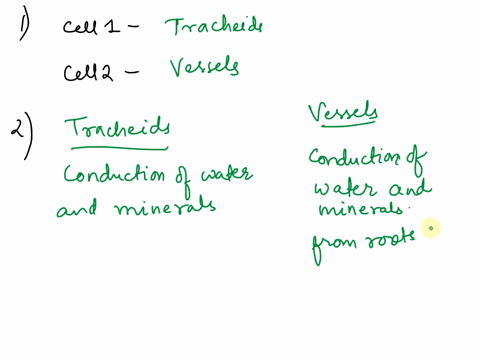 1) Cell 1 - Tracheids
Cell 2 - Vessels
2) Tracheids
Conduction of water
and minerals
Vessels
Conduction of
water and
minerals.
from roots